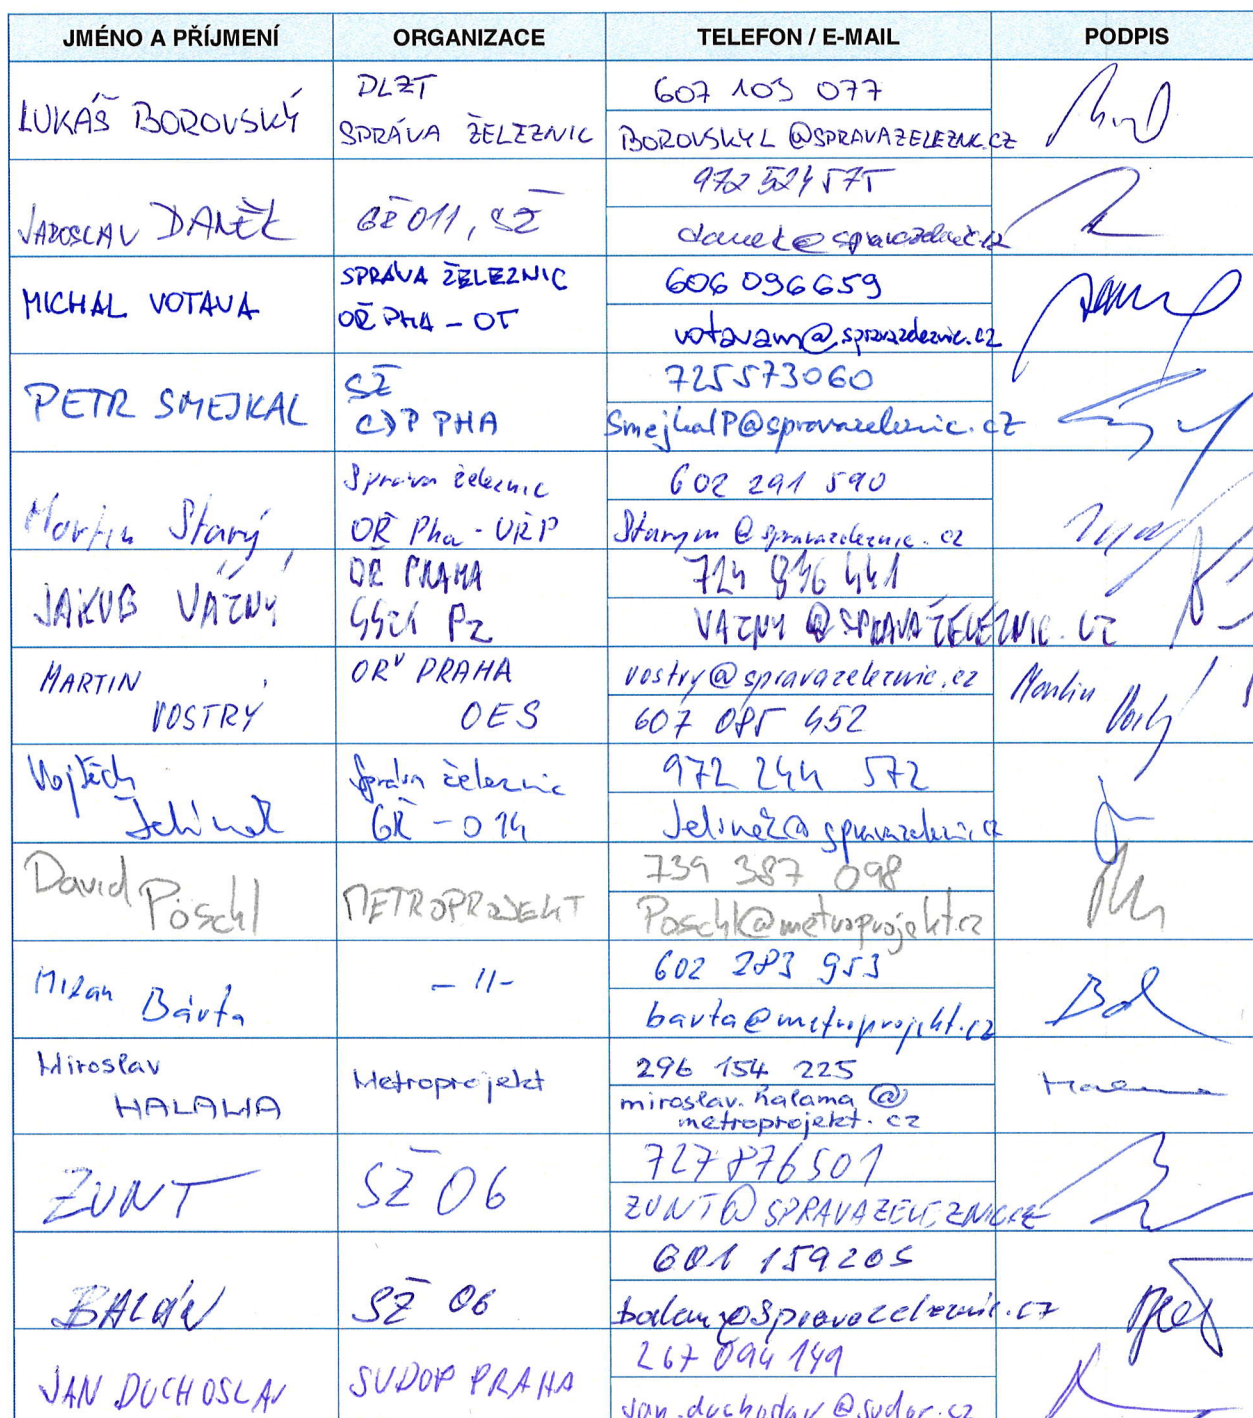 JMÉNO A PŘÍJMENÍ ORGANIZACE TELEFON / E-MAIL PODPIS
LUKÁŠ BOROVSKÝ
DLŽT
SPRÁVA ŽELEZNIC
607 103 077
BOROVSKYL@SPRAVAZELEZNIC.CZ
JAROSLAV DANĚK
GŘ O11, SŽ
972 524 575
danek@spravazeleznic.cz
MICHAL VOTAVA
SPRÁVA ŽELEZNIC
OŘ PHA - OT
606 096 659
votavam@spravazeleznic.cz
PETR SMEJKAL
SŽ
CDP PHA
725573060
SmejkalP@spravazeleznic.cz
Martin Starý
Správa železnic
OŘ Pha - ÚŘP
602 291 590
Starym@spravazeleznic.cz
JAKUB VÁŽNÝ
OŘ PRAHA
VAZNY@SPRAVAŽELEZNIC.CZ
MARTIN
VOSTRÝ
OŘ PRAHA
OES
vostry@spravazeleznic.cz
607 085 452
Martin
Vojtěch
Jelínek
Správa železnic
GŘ - O14
972 244 572
Jelinek@spravazeleznic.cz
David
Pöschl
METROPROJEKT
739 387 098
Poschl@metroprojekt.cz
Milan
Bárta
- 11 -
602 283 953
barta@metroprojekt.cz
Miroslav
HALAMA
Metroprojekt
296 154 225
miroslav.halama@
metroprojekt.cz
ZUNT
SŽ O6
727 876 501
ZUNT@SPRAVAZELEZNIC.CZ
BALÁN
SŽ O6
601 159205
SUDOP PRAHA
JAN DUCHOSLAV
267 094 149
jan.duchoslav@sudop.cz